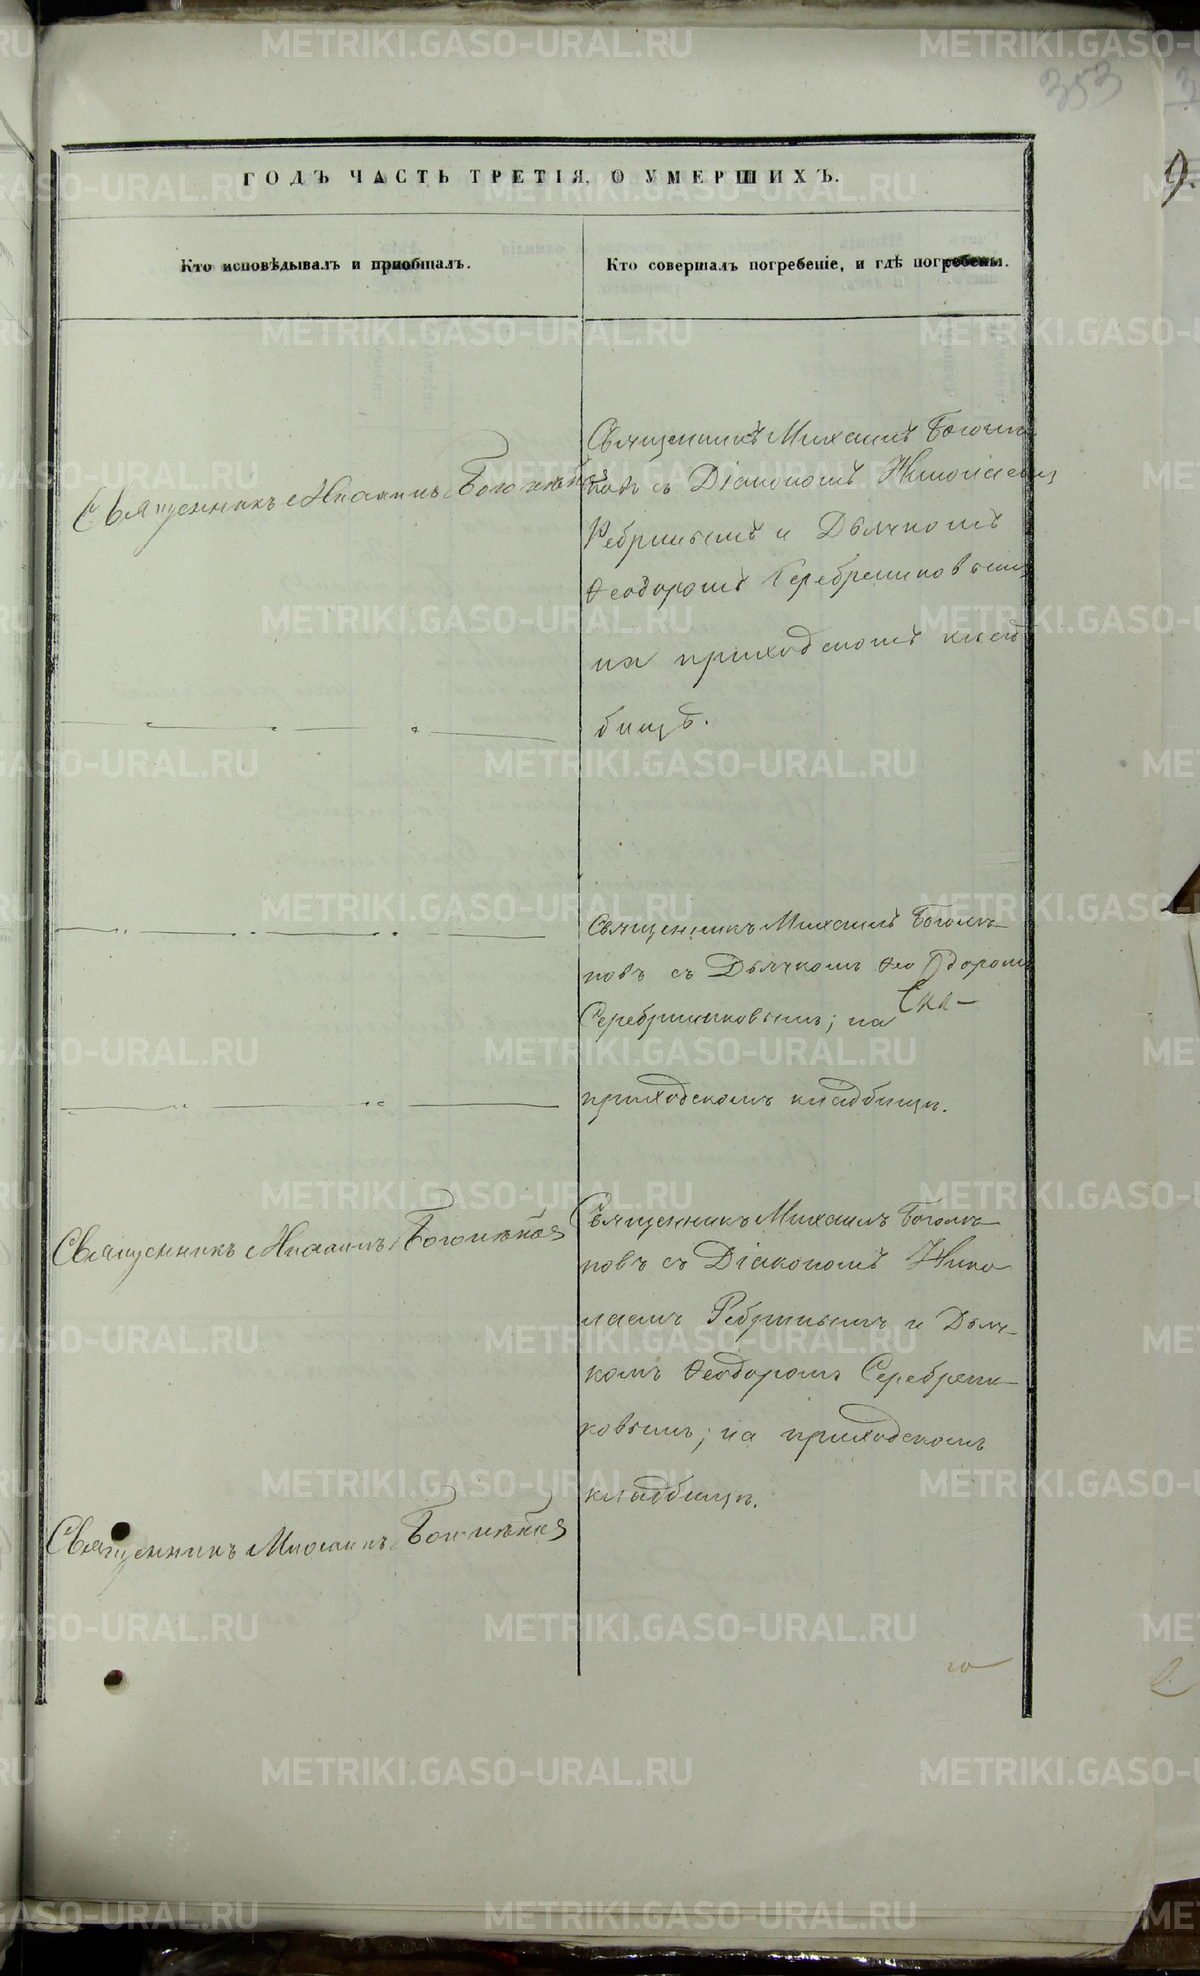 353
ГОДЪ ЧАСТЬ ТРЕТІЯ, О УМЕРШИХЪ.
Кто исповѣдывалъ и пріобщалъ.
Кто совершалъ погребеніе, и гдѣ погребены.
Священникъ Михаилъ
Священникъ Михаилъ
съ Діакономъ Николаемъ
и Дьячкомъ
Ѳеодоромъ Серебрениковымъ
на приходскомъ клад
бищѣ.
Священникъ Михаилъ Боголѣ-
повъ съ Дьячкомъ Ѳеодоромъ
Серебрениковымъ; на
приходскомъ кладбищѣ.
Священникъ Михаилъ Боголѣповъ
Священникъ Михаилъ Боголѣ-
повъ съ Діакономъ Нико
лаемъ и Дьяч-
комъ Ѳеодоромъ Серебрени-
ковымъ; на приходскомъ
кладбищѣ.
Священникъ Михаилъ Боголѣповъ
METRIKI.GASO-URAL.RU